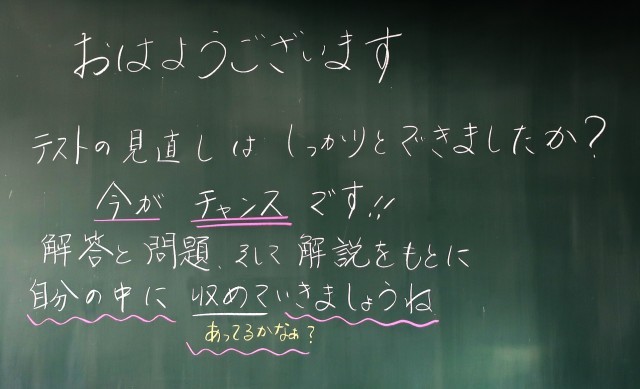 おはようございます
テストの見直しは しっかりとできましたか?
今が チャンス です!!
解答と 問題、そして 解説をもとに
自分の中に 収めていきましょうね
あってるかなぁ?